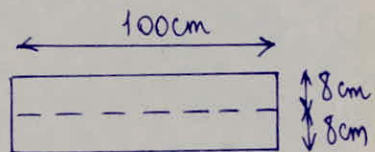 100cm
8cm
8cm